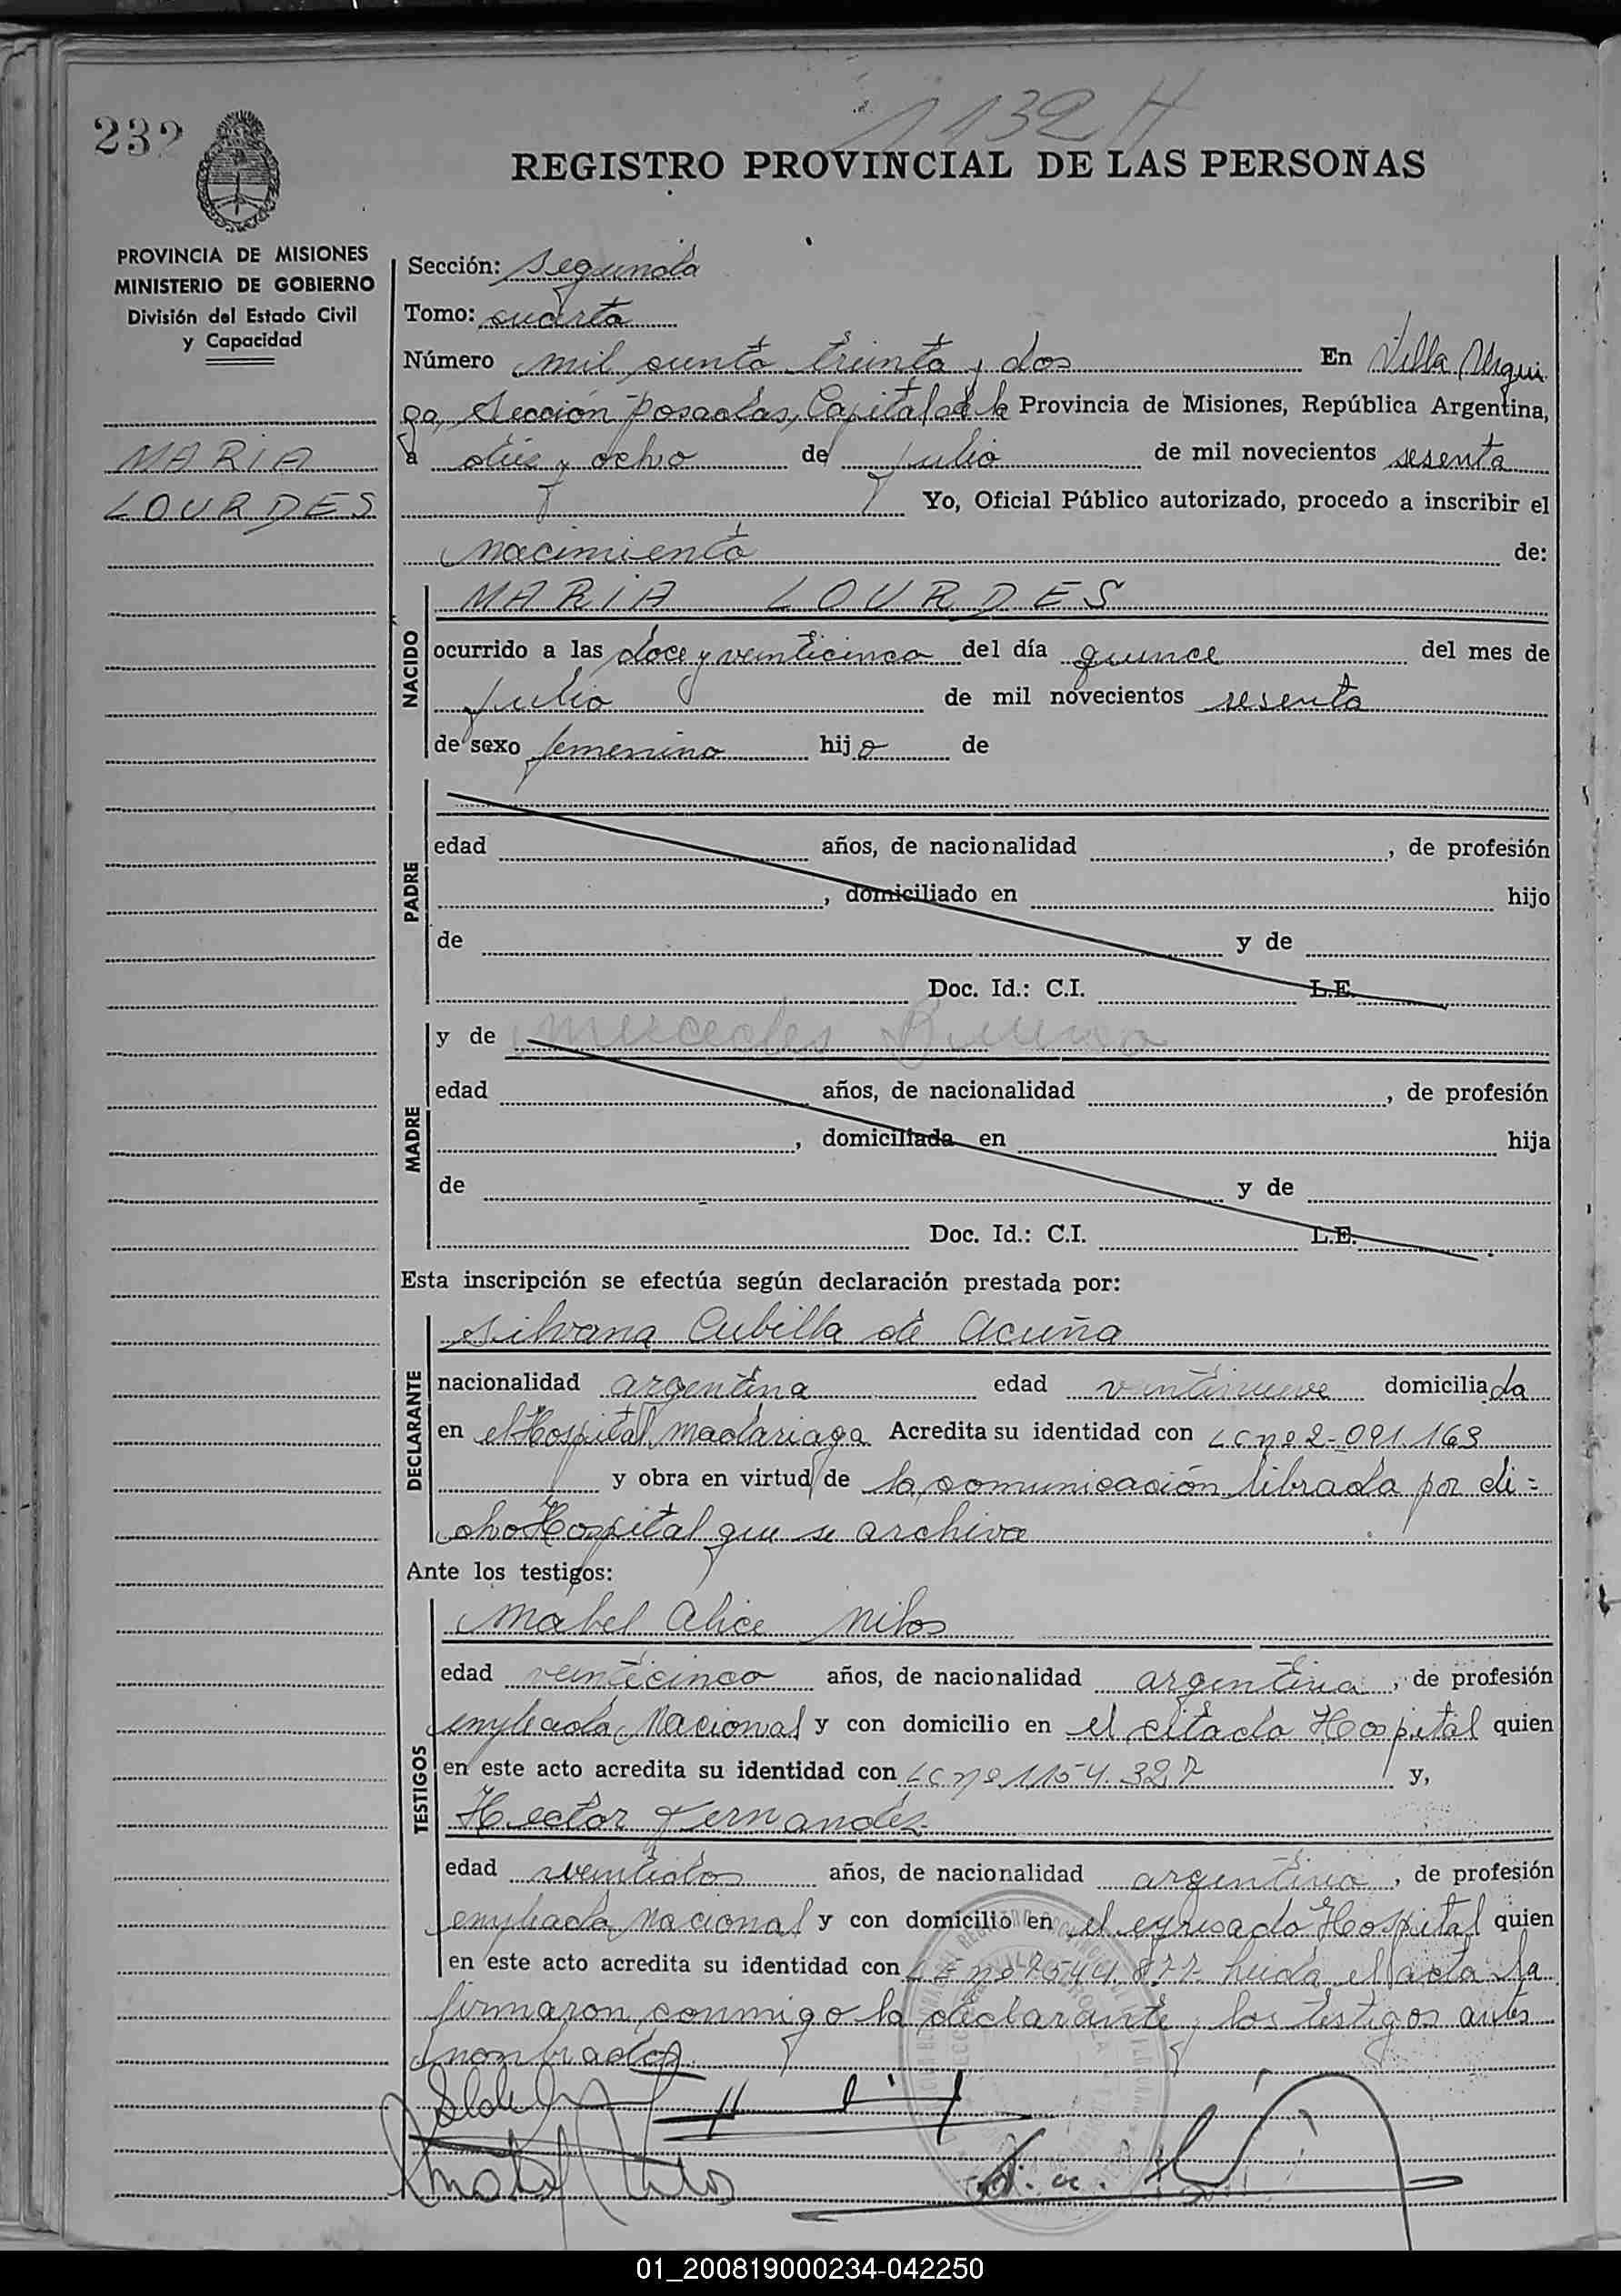 1132 H
232
REGISTRO PROVINCIAL DE LAS PERSONAS
PROVINCIA DE MISIONES
MINISTERIO DE GOBIERNO
División del Estado Civil
y Capacidad
MARIA
LOURDES
Sección: segunda
Tomo: cuarto
Número mil ciento treinta y dos En Villa Urqui
za, Sección Posadas, Capital de la Provincia de Misiones, República Argentina,
a diez y ocho de julio de mil novecientos sesenta
Yo, Oficial Público autorizado, procedo a inscribir el
nacimiento de:
NACIDO
MARIA LOURDES
ocurrido a las doce y veinticinco del día quince del mes de
julio de mil novecientos sesenta
de sexo femenino hija de
PADRE
edad años, de nacionalidad , de profesión
, domiciliado en hijo
de y de
Doc. Id.: C.I. L.E.
MADRE
y de Mercedes
edad años, de nacionalidad , de profesión
, domiciliada en hija
de y de
Doc. Id.: C.I. L.E.
Esta inscripción se efectúa según declaración prestada por:
DECLARANTE
Silvana Cubilla de Acuña
nacionalidad argentina edad veintinueve domiciliada
en el Hospital Madariaga Acredita su identidad con LC nº 2-091.163
y obra en virtud de la comunicación librada por di=
cho Hospital que se archiva
Ante los testigos:
TESTIGOS
Mabel Alice Nilos
edad veinticinco años, de nacionalidad argentina, de profesión
empleada Nacional y con domicilio en el citado Hospital quien
en este acto acredita su identidad con LC nº 1154.327 y,
Hector Fernandez
edad veintidos años, de nacionalidad argentina, de profesión
empleada Nacional y con domicilio en el expresado Hospital quien
en este acto acredita su identidad con LE nº 7544.877 leida el acta la
firmaron conmigo la declarante y los testigos antes
nombrados
01_200819000234-042250